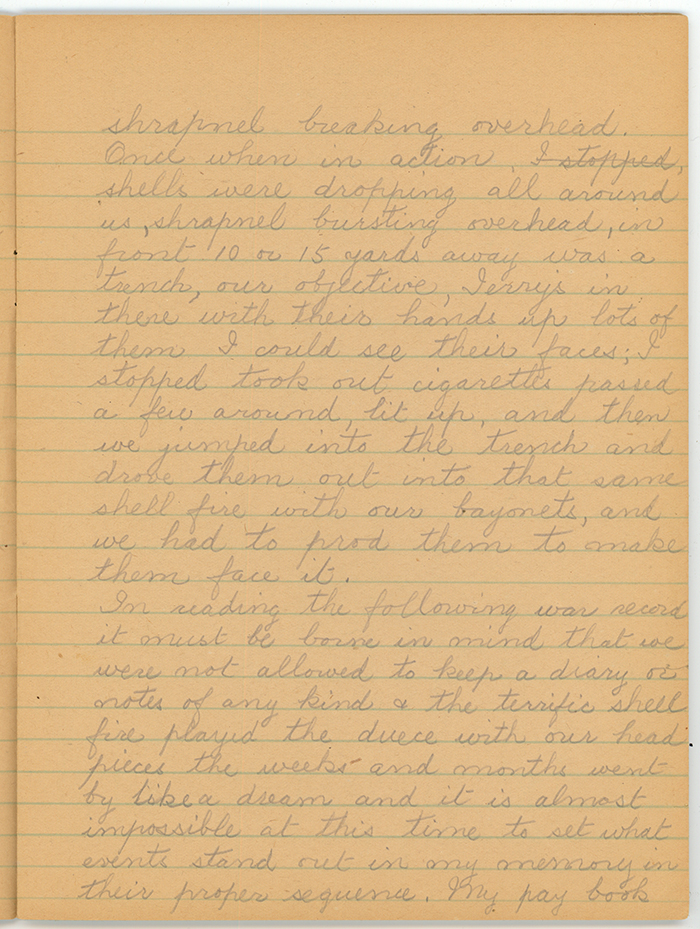 shrapnel breaking overhead.
Once when in action, I stopped,
shells were dropping all around
us, shrapnel bursting overhead, in
front 10 or 15 yards away was a
trench, our objective, Jerrys in
there with their hands up lots of
them I could see their faces; I
stopped took out cigarettes passed
a few around, lit up, and then
we jumped into the trench and
drove them out into that same
shell fire with our bayonets, and
we had to prod them to make
them face it.
In reading the following war record
it must be born in mind that we
were not allowed to keep a diary or
notes of any kind & the terrific shell
fire played the duece with our head
pieces the weeks and months went
by like a dream and it is almost
impossible at this time to set what
events stand out in my memory in
their proper sequence. My pay book